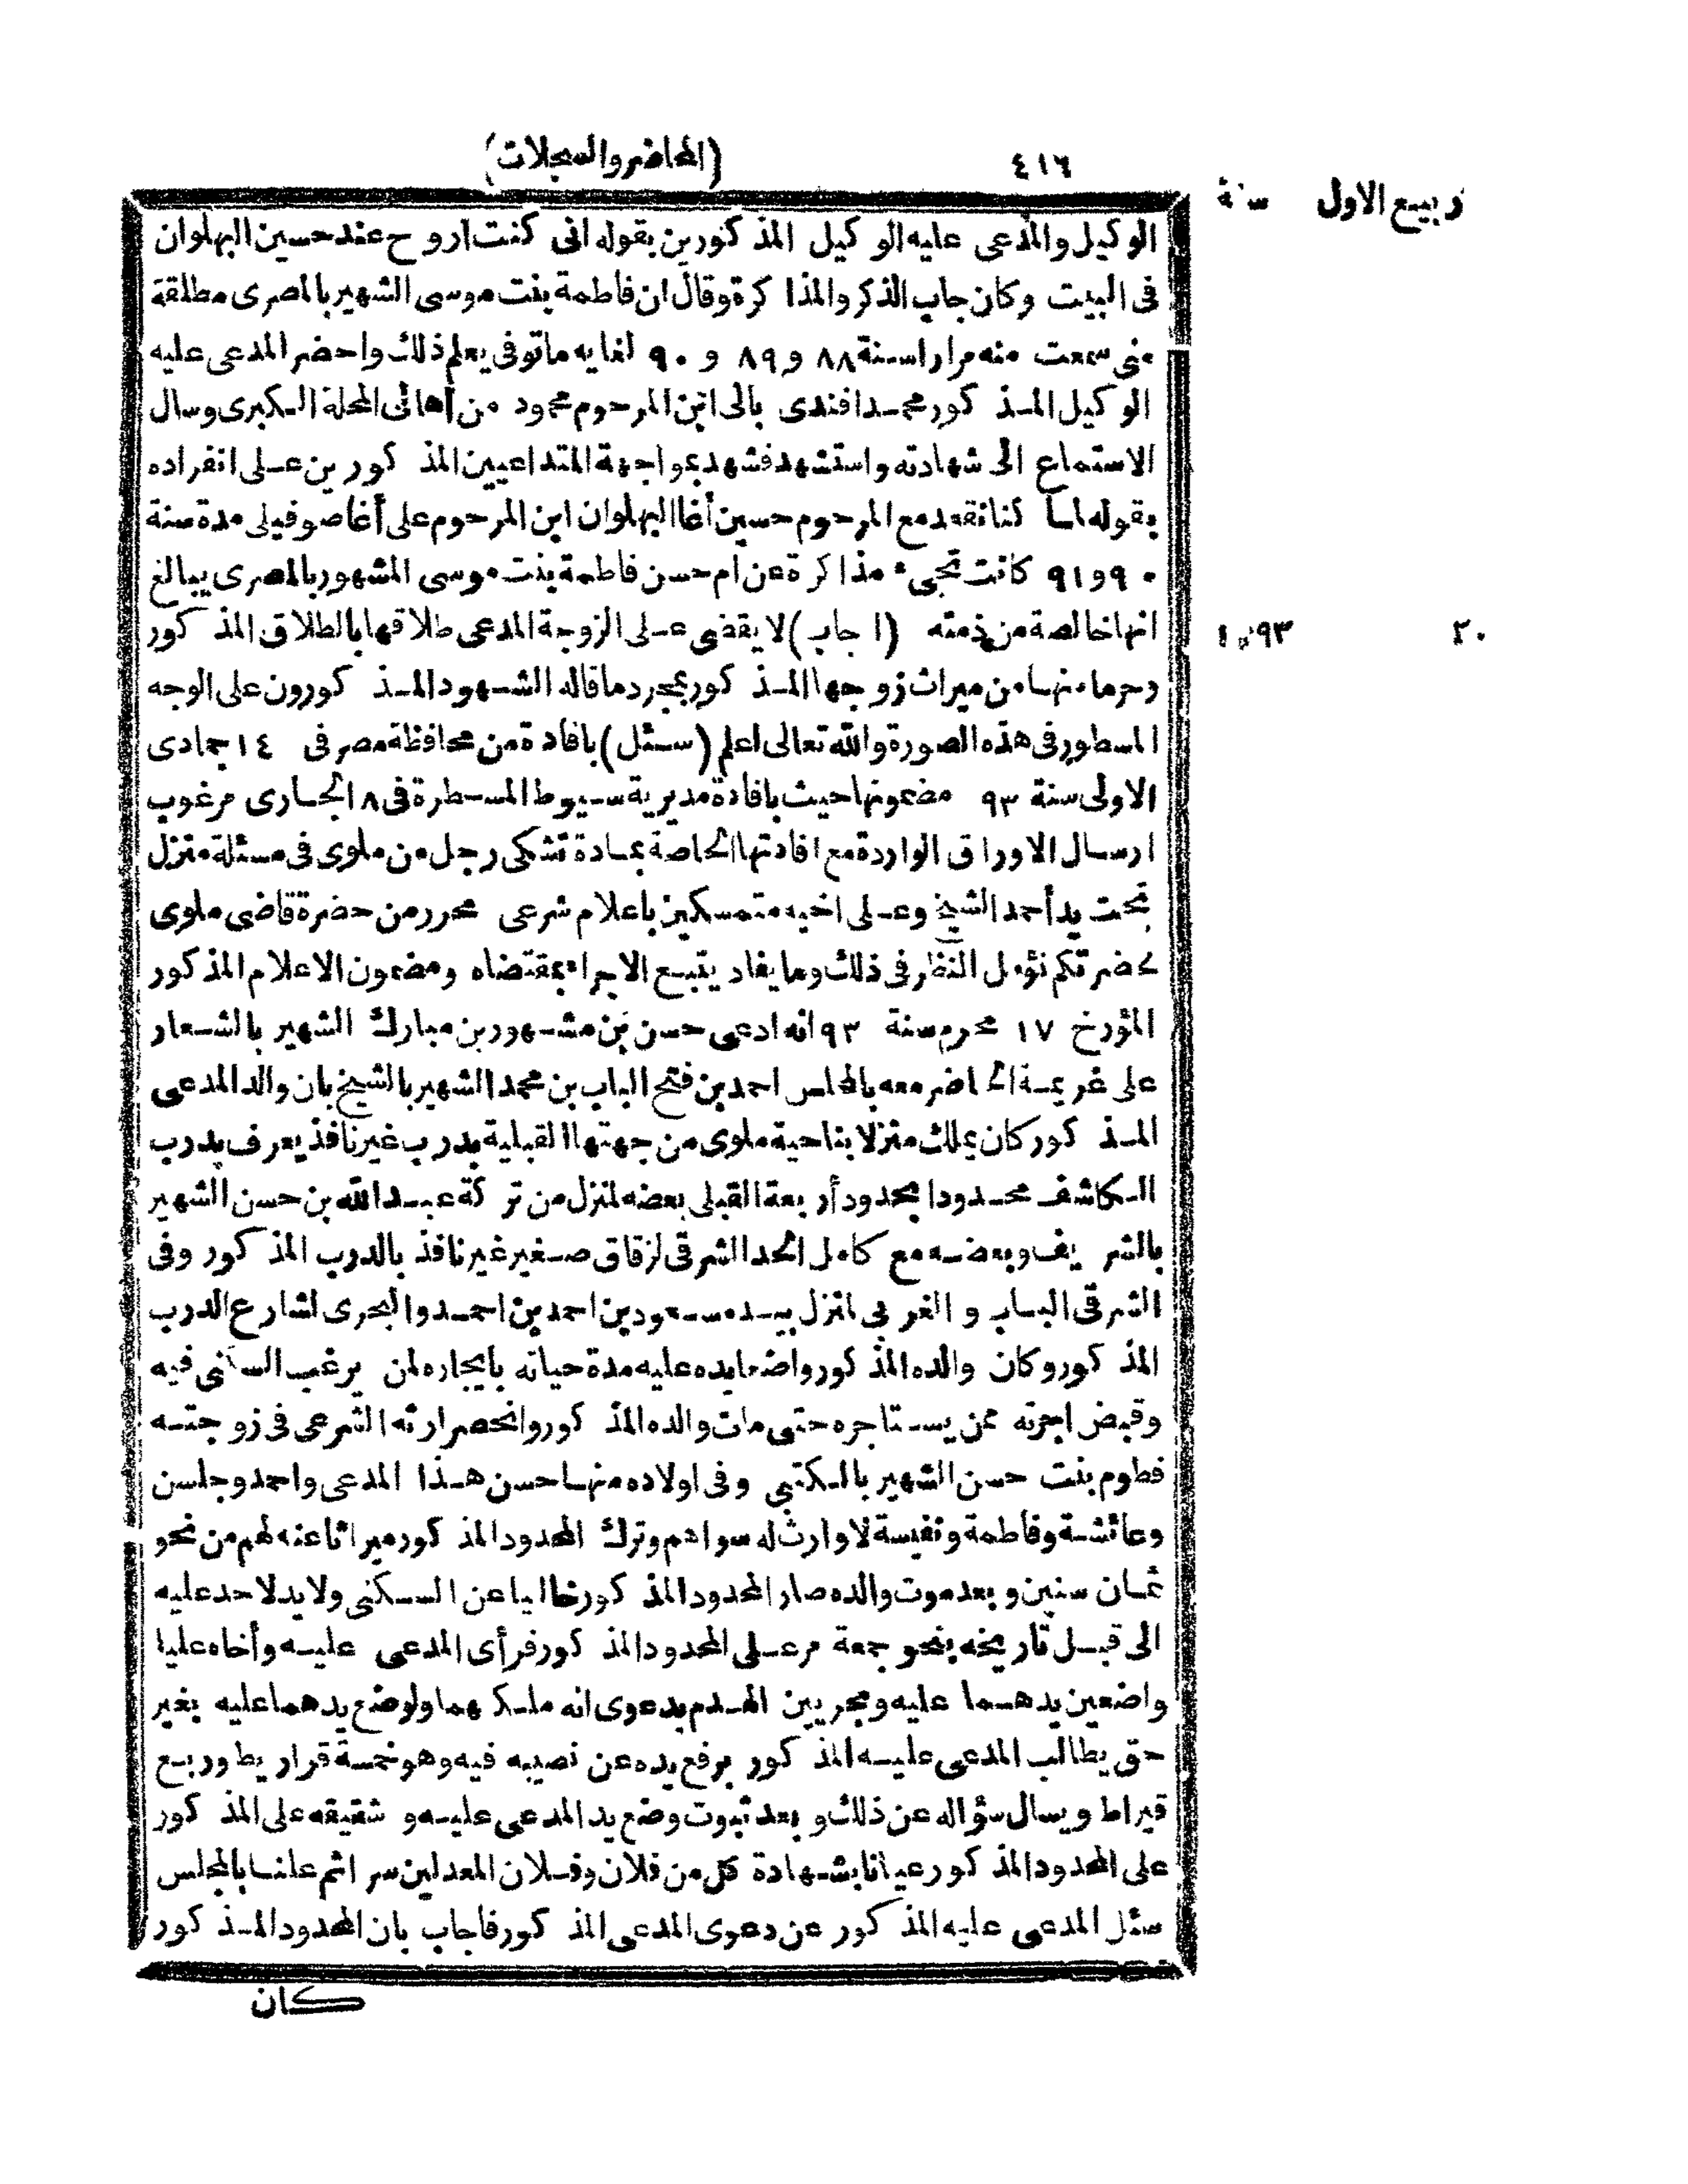 ٤١٦ (المحاضر والسجلات)
ربيع الاول سنة
الوكيل والمدعى عليه الوكيل المذكورين بقوله انى كنت اروح عند حسين البهلوان
فى البيت وكان جاب الذكر والمذاكرة وقال ان فاطمة بنت موسى الشهير بالمصرى مطلقة
منى سمعت منه مرارا سنة ٨٨ و ٨٩ و ٩٠ لغايه ماتوفى يعلم ذلك واحضر المدعى عليه
الوكيل المذكور محمد افندى بالى ابن المرحوم محمود من أهالى المحلة الكبرى وسال
الاستماع الى شهادته واستشهد فشهد بمواجهة المتداعيين المذكورين على انفراده
بقوله لما كنا نقعد مع المرحوم حسين أغا البهلوان ابن المرحوم على أغا صوفيلى مدة سنة
٩٠ و٩١ كانت تجىء مذاكرة عن ام حسن فاطمة بنت موسى المشهور بالمصرى يبالغ
انها خالصة من ذمته (اجاب) لا يقضى على الزوجة المدعى طلاقها بالطلاق المذكور
٢٠ ١٢٩٣
وحرمانها من ميراث زوجها المذكور بمجرد ما قاله الشهود المذكورون على الوجه
المسطور فى هذه الصورة والله تعالى اعلم (سئل) بافادة من محافظة مصر فى ١٤ جمادى
الاولى سنة ٩٣ مضمونها حيث بافادة مديرية سيوط المسطرة فى ٨ الجارى مرغوب
ارسال الاوراق الواردة مع افادتها الخاصة بمادة تشكى رجل من ملوى فى مسئلة منزل
تحت يد أحمد الشيخ وعلى اخيه متمسكين باعلام شرعى محرر من حضرة قاضى ملوى
لحضرتكم نؤمل النظر فى ذلك وما يفاد يتبع الاجراء بمقتضاه ومضمون الاعلام المذكور
المؤرخ ١٧ محرم سنة ٩٣ انه ادعى حسن بن مشهور بن مبارك الشهير بالشعار
على غريمة الحاضر معه بالمجلس احمد بن فتح الباب بن محمد الشهير بالشيخ بان والد المدعى
المذكور كان يملك منزلا بناحية ملوى من جهتها القبلية بدرب غير نافذ يعرف بدرب
الكاشف محدودا بحدود أربعة القبلى بعضه لمنزل من تركة عبد الله بن حسن الشهير
بالشريف وبعضه مع كامل الحد الشرقى لزقاق صغير غير نافذ بالدرب المذكور وفى
الشرقى الباب و الغربى لمنزل بيد مسعود بن احمد بن احمد والبحرى لشارع الدرب
المذكور وكان والده المذكور واضعا يده عليه مدة حياته بايجاره لمن يرغب السكنى فيه
وقبض اجرته ممن يستاجره حتى مات والده المذكور وانحصر ارثه الشرعى فى زوجته
فطوم بنت حسن الشهير بالكتبى وفى اولاده منها حسن هذا المدعى واحمد وجلسن
وعائشة وفاطمة ونفيسة لا وارث له سواهم وترك المحدود المذكور ميراثا عنه لهم من نحو
ثمان سنين وبعد موت والده صار المحدود المذكور خاليا عن السكنى ولا يد لاحد عليه
الى قبل تاريخه بنحو جمعة مر على المحدود المذكور فرأى المدعى عليه وأخاه عليا
واضعين يدهما عليه ومجريين الهدم بدعوى انه ملكهما ولوضع يدهما عليه بغير
حق يطالب المدعى عليه المذكور برفع يده عن نصيبه فيه وهو خمسة قراريط وربع
قيراط ويسال سؤاله عن ذلك وبعد ثبوت وضع يد المدعى عليه و شقيقه على المذكور
على المحدود المذكور عيانا بشهادة كل من فلان وفلان المعدلين سرا ثم علنا بالمجلس
سئل المدعى عليه المذكور عن دعوى المدعى المذكور فاجاب بان المحدود المذكور
كان